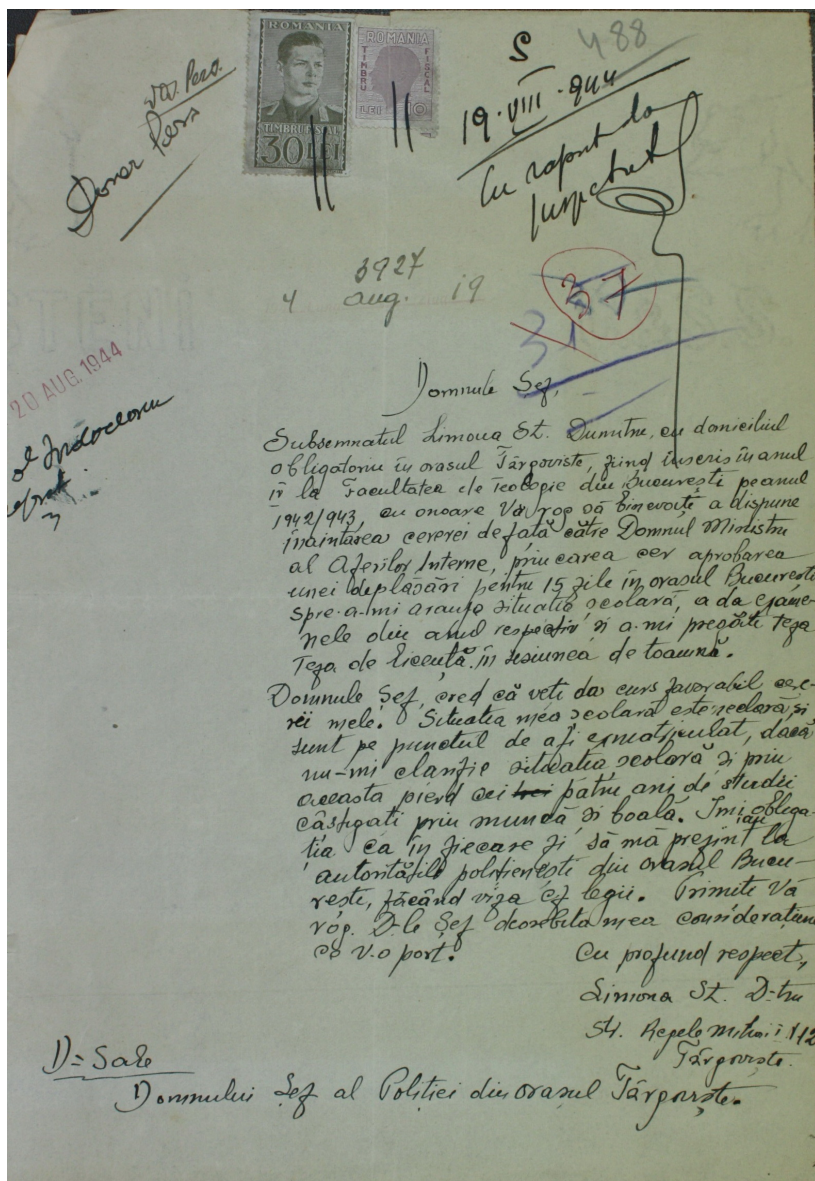 488
S
19.VIII.944
Cu raport la
ROMANIA
TIMBRU FISCAL
30 LEI
ROMANIA
TIMBRU
FISCAL
LEI 10
Dosar Pers.
3927
4 aug. 19
37
20 AUG. 1944
Domnule Șef,
Subsemnatul Limona St. Dumitru, cu domiciliul
obligatoriu în orasul Târgoviste, fiind înscris în anul
IV la Facultatea de Teologie din București pe anul
1942/943, cu onoare Vă rog să binevoiți a dispune
înaintarea cererei de față către Domnul Ministru
al Aferilor Interne, prin carea cer aprobarea
unei deplasări pentru 15 zile în orasul Bucuresti
spre-a-mi aranja situatia scolară, a da exame-
nele din anul respectiv si a-mi pregăti teza
Teza de Licentă în sesiunea de toamnă.
Domnule Șef, cred că veti da curs favorabil cere-
rei mele. Situatia mea scolară este neclară, si
sunt pe punctul de a fi exmatriculat, dacă
nu-mi clarific situatia scolară si prin
aceasta pierd cei trei patru ani de studii
câstigati prin muncă si boală. Imi iau obliga-
tia ca în fiecare zi să mă prezint la
autoritățile polițienești din orasul Bucu-
rești, făcând viza cf. legii. Primite Vă
rog. D-le Șef deosebita mea considerațiune
ce v-o port.
Cu profund respect,
Limona St. D-tru
Str. Regele Mihai I
Târgoviște.
D-Sale
Domnului Șef al Poliției din orasul Târgoviște.